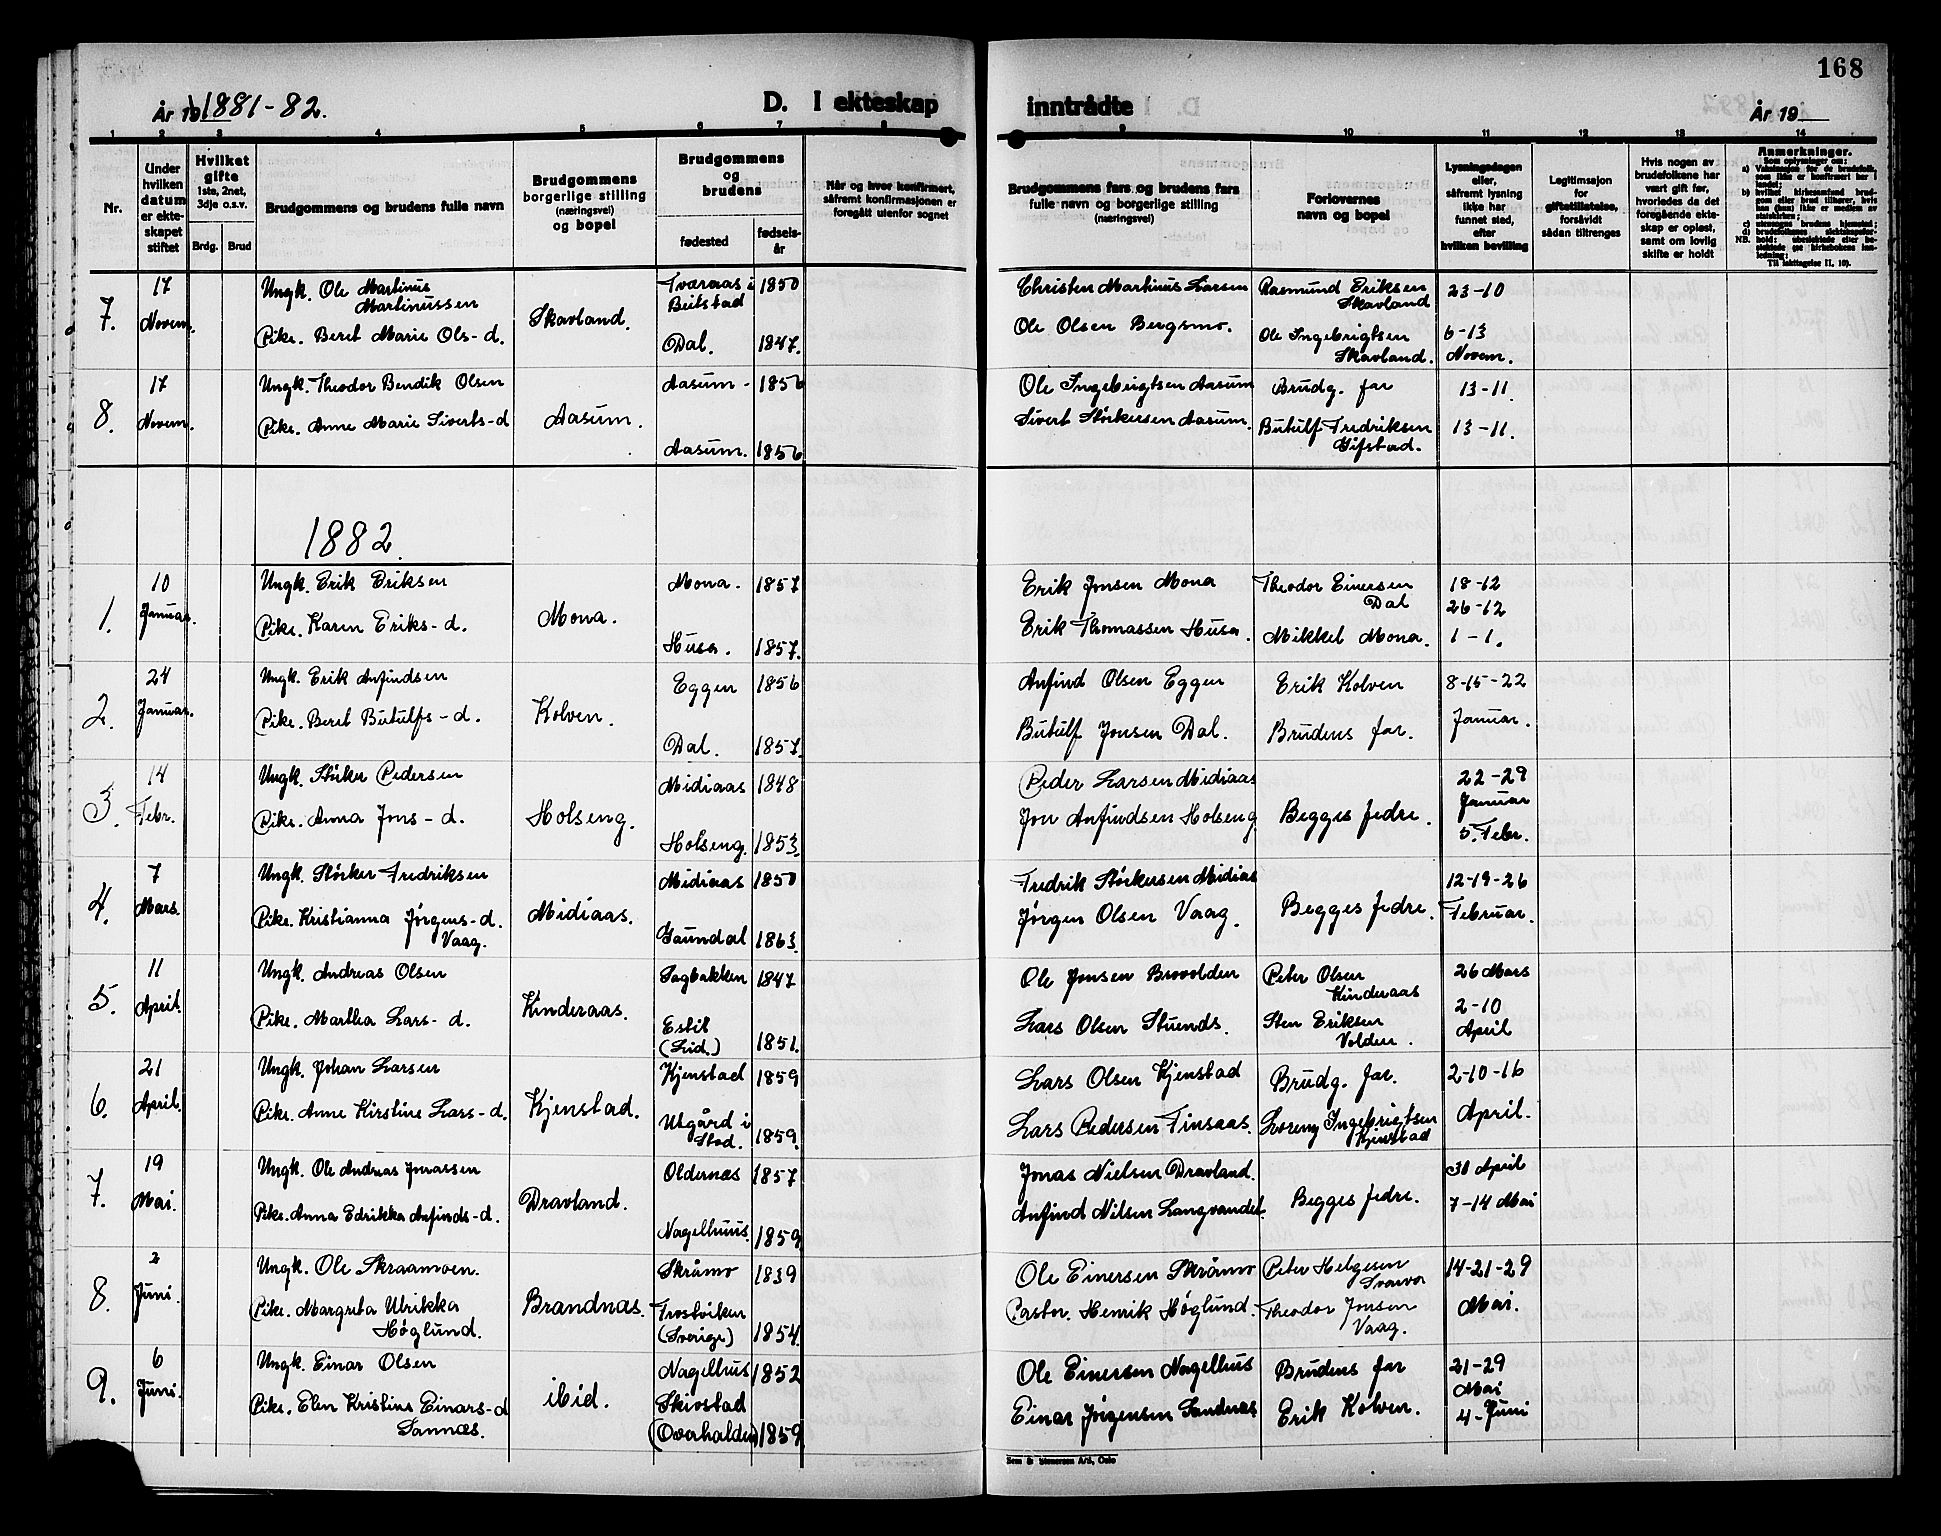 168
År 19 1881-82.
D. I ekteskap inntrådte
År 19
1 2 3 4 5 6 7 8 9 10 11 12 13 14
Nr.
Under hvilken datum er ekteskapet stiftet
Hvilket gifte
1ste, 2net, 3dje o.s.v.
Brdg. Brud
Brudgommens og brudens fulle navn
Brudgommens borgerlige stilling (næringsvei) og bopel
Brudgommens og brudens
fødested
fødselsår
Når og hvor konfirmert, såfremt konfirmasjonen er foregått utenfor sognet
Brudgommens fars og brudens fars fulle navn og borgerlige stilling (næringsvei)
Forlovernes navn og bopel
Lysningsdagen eller, såfremt lysning ikke har funnet sted, efter hvilken bevilling
Legitimasjon for giftetillatelse, forsåvidt sådan tiltrenges
Hvis nogen av brudefolkene har vært gift før, hvorledes da det foregående ekteskap er opløst, samt om lovlig skifte er holdt
Anmerkninger.
Som oplysninger om:
7. 17 Novem. Ungk. Ole Martinus Martinussen Skavland. Tværaas i Beitstad 1850 Christen Martinus Larsen Rasmund Eriksen Skavland 23-10
Pike. Beret Marie Ols-d. Dal. 1847. Ole Olsen Bergsmo. Ole Ingebrigtsen Skavland. 6-13 Novem.
8. 17 Novem. Ungk. Theodor Bendik Olsen Aasum. Aasum - 1856 Ole Ingebrigtsen Aasum Brudg. far 13-11
Pike. Anne Marie Siverts-d Aasum. 1856 Sivert Størkersen Aasum. Butulf Fredriksen Gifstad. 13-11.
1882
1. 10 Januar. Ungk. Erik Eriksen Mona. Mona. 1857 Erik Jonsen Mona Theodor Einersen Dal 18-12 26-12
Pike. Karen Eriks-d. Husa. 1857. Erik Thomassen Husa. Mikkel Mona. 1-1.
2. 24 Januar. Ungk. Erik Anfindsen Kolven. Eggen 1856 Anfind Olsen Eggen Erik Kolven 8-15-22
Pike. Beret Butulfs-d. Dal. 1857. Butulf Jonsen Dal. Brudens far. Januar.
3. 14 Febr. Ungk. Størker Pedersen Holseng. Midiaas 1848 Peder Larsen Midiaas Begges fedre. 22-29 Januar
Pike. Anna Jons-d. Holseng. 1853. Jon Anfindsen Holseng 5. Febr.
4. 7 Mars. Ungk. Størker Fredriksen Midiaas. Midiaas 1850 Fredrik Størkersen Midias Begges fedre. 12-19-26
Pike. Kristianna Jørgens-d. Vaag. Gaundal 1863. Jørgen Olsen Vaag. Februar.
5. 11 April. Ungk. Andreas Olsen Kinderaas. Sagbakken 1847 Ole Jonsen Brovolden Peter Olsen Kinderaas 26 Mars
Pike. Martha Lars-d. Estil (Lid.) 1851. Lars Olsen Stuends. Sten Eriksen Volden. 2-10 April
6. 21 April. Ungk. Johan Larsen Kjenstad. Kjenstad 1859 Lars Olsen Kjenstad Brudg. far. 2-10-16
Pike. Anne Kirstine Lars-d. Utgård i Stod. 1859. Lars Pedersen Finsaas. Lorens Ingebrigtsen Kjenstad April.
7. 19 Mai. Ungk. Ole Andreas Jonassen Dravland. Oldernæs 1857 Jonas Nielsen Dravland. Begges fedre. 30 April
Pike. Anna Edrikka Anfinds-d. Nagelhuus. 1859 Anfind Nilsen Langvandet. 7-14 Mai
8. 2 Juni. Ungk. Ole Skraamoen. Brandnas. Skråmo 1839 Ole Einersen Skråmo Peter Helgesen 14-21-29
Pike. Margreta Ulrikka Høglund. Trostviken (Sverige) 1854. Pastor. Henrik Høglund. Theodor Jonsen Vaag. Mai.
9. 6 Juni. Ungk. Einar Olsen ibid. Nagelhus 1852 Ole Einersen Nagelhus Brudens far 21-29 Mai
Pike. Elen Kristine Einars-d Sannæs. Skistad (Overhalden) 1859 Einar Jørgensen Sandnæs Erik Kolven. 4-Juni
Sem & Stenersen A/S, Oslo